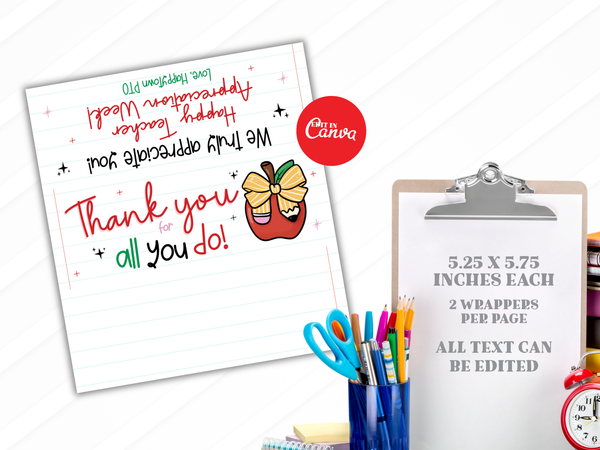 Love, HappyTown PTO
Happy Teacher
Appreciation Week!
We truly appreciate you!
Thank you
for
all you do!
EDIT IN
Canva
5.25 X 5.75
INCHES EACH
2 WRAPPERS
PER PAGE
ALL TEXT CAN
BE EDITED